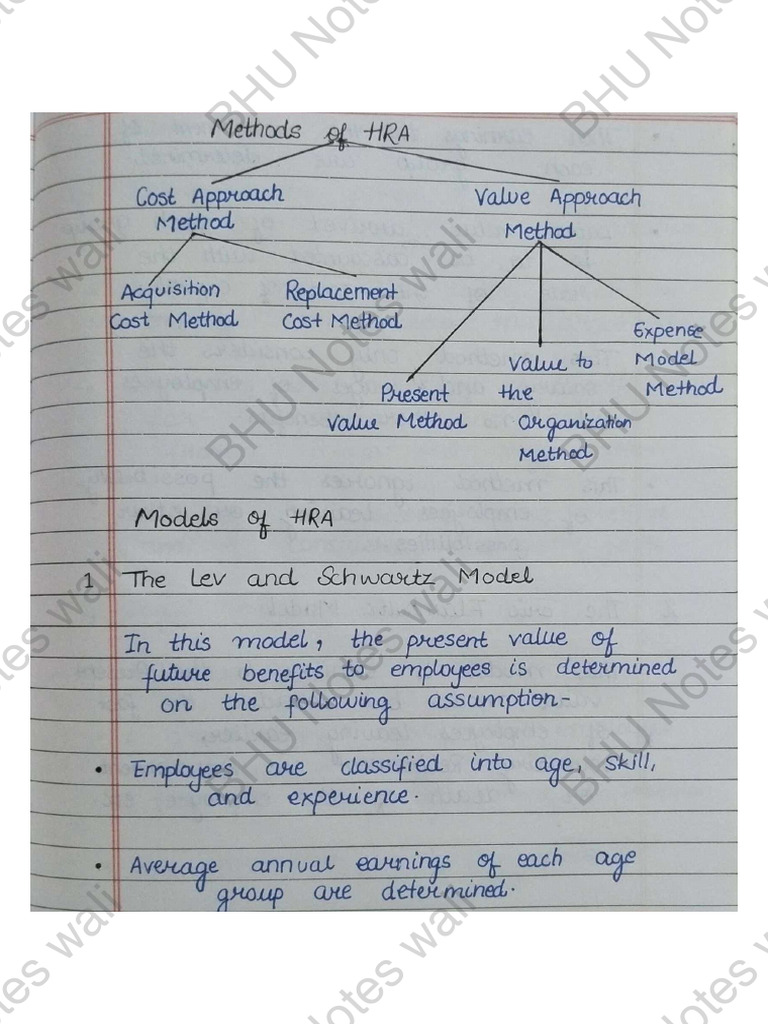 Methods of HRA
Cost Approach
Method
Value Approach
Method
Acquisition
Cost Method
Replacement
Cost Method
Present
Value Method
Value to
the
Organization
Method
Expense
Model
Method
Models of HRA
1 The Lev and Schwartz Model
In this model, the present value of
future benefits to employees is determined
on the following assumption-
• Employees are classified into age, skill,
and experience.
• Average annual earnings of each age
group are determined.
BHU Notes wali